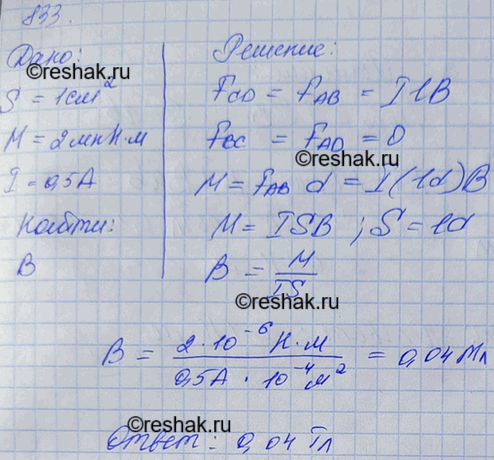 833.
Дано:
S = 1см²
M = 2мкН·м
I = 0,5А
Найти:
B
Решение:
F_CD = F_AB = IlB
F_BC = F_AD = 0
M = F_AB d = I(ld)B
M = ISB ; S = ld
B = M / IS
B = 2·10⁻⁶ Н·м / 0,5А · 10⁻⁴ м² = 0,04 Мл
Ответ: 0,04 Тл
©reshak.ru
©reshak.ru
©reshak.ru
©reshak.ru
©reshak.ru
©reshak.ru